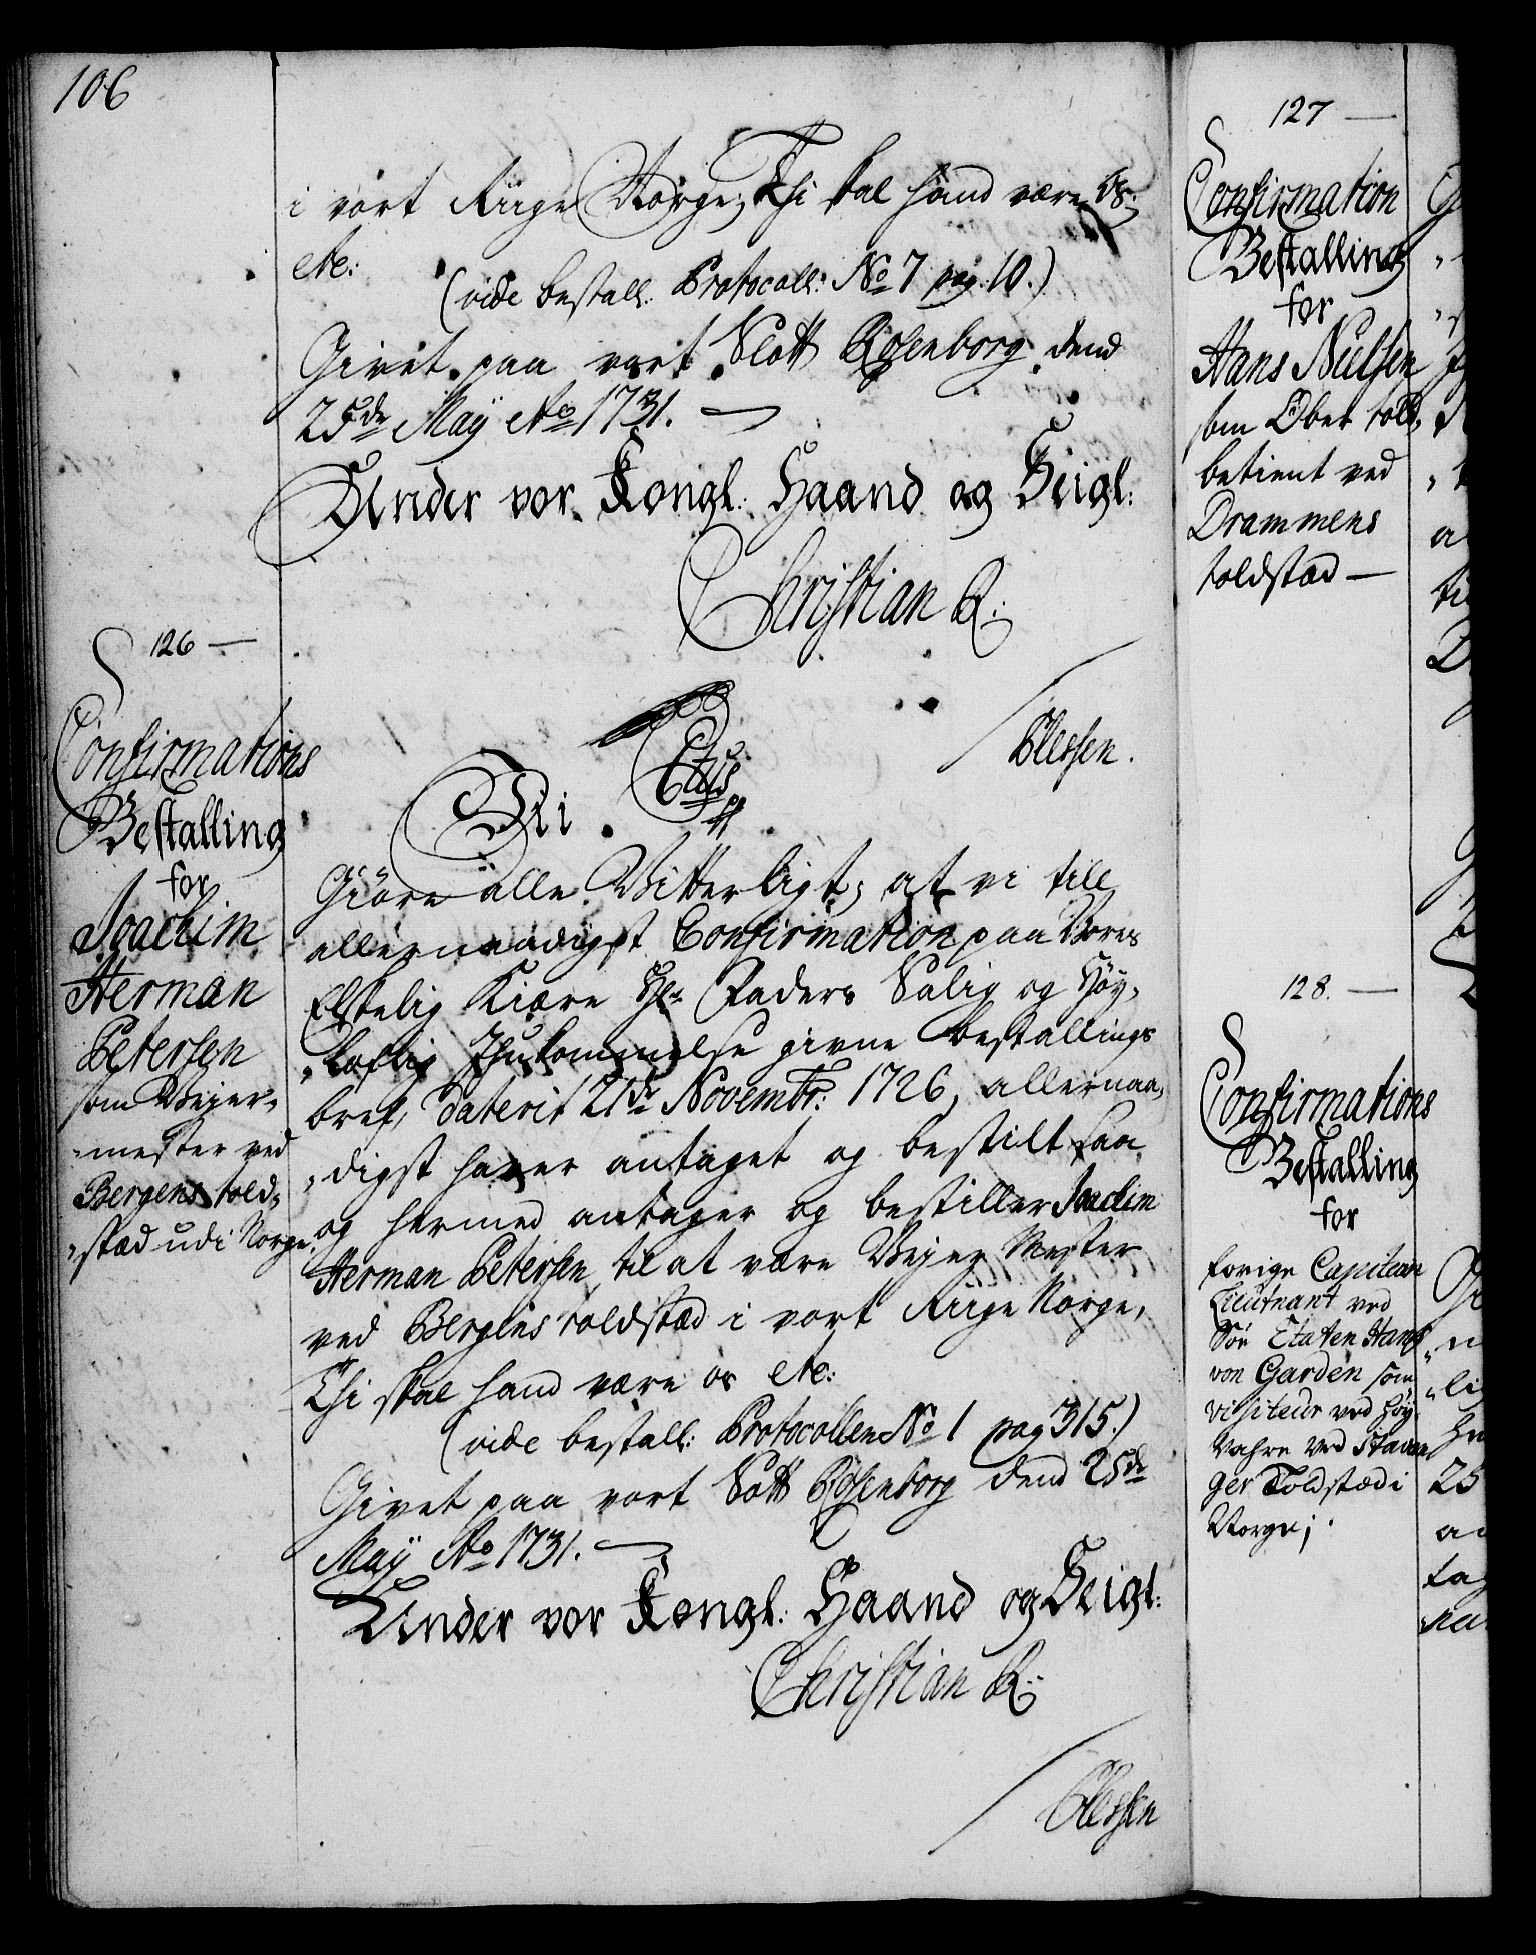 106
i vort Riige Norge; Thi skal hand være Os
etc:
(vide bestall: Protocoll: No 7 pag. 10.)
Givet paa vort Slott Rosenborg dend
25de Maÿ Ao 1731.
Under vor Kongl: Haand og Seigl:
Christian R:
126
Confirmations
Bestalling
for
Joachim
Herman
Petersen
som Vejer-
-mester ved
Bergens told-
-stæd udi Norge.
Vi
Giøre alle Vitterligt; at vi till
allernaadigst Confirmation paa Vores
Elskelig Kiære Hr Faders Salig og Høy-
-loflig Ihukommelse givne bestallings
bref, daterit 21de Novembr: 1726, allernaa-
-digst haver antaget og bestilt saa
og hermed antager og bestiller Joachim
Herman Petersen, til at være Vejer Mester
ved Bergens toldstæd i vort Riige Norge,
Thi skal hand være os etc:
(vide bestall: Protocollen No 1 pag 315.)
Givet paa vort Slott Rosenborg dend 25de
Maÿ Ao 1731.
Under vor Kongl: Haand og Seigl:
Christian R:
127
Confirmation
Bestalling
for
Hans Nielsen
som Over told-
betient ved
Drammens
toldstæd
128.
Confirmations
Bestalling
for
forige Capitain
Lieutnant ved
Søe Etaten Hans
von Garden som
visiteur ved Høy
Vahre ved Stavan
ger Toldstæd i
Norge;